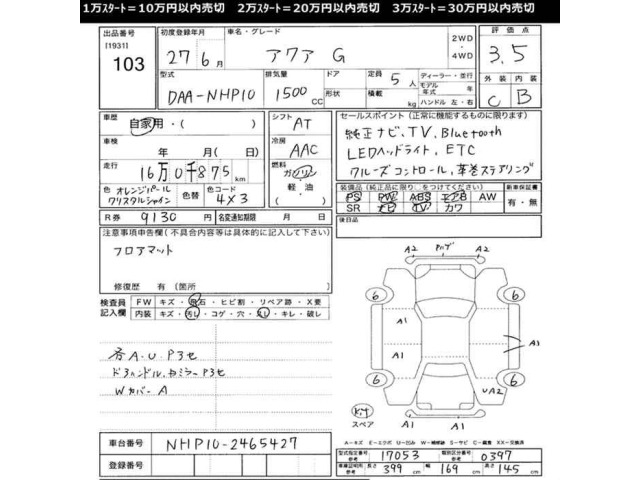 1万スタート=10万円以内売切 2万スタート=20万円以内売切 3万スタート=30万円以内売切
出品番号
[1931]
103
初度登録年月
27年6月
車名・グレード
アクア G
2WD
・
4WD
評価点
3.5
型式
DAA-NHP10
排気量
1500 CC
ドア
形状
定員 5人
積載 kg
ディーラー・並行
モデル年式 年
ハンドル 左・右
外装 内装
C B
車歴
自家用・( )
シフト
AT
車検
年 月(日 月)
冷房
AAC
走行
16万0千875km
燃料
ガソリン
・軽油・
( )
色 オレンジパール
クリスタルシャイン
色替
色コード
4X3
R券 9130円 名変通知期限 月 日
セールスポイント (正常に機能するものに限ります)
純正ナビ、TV、Bluetooth
LEDヘッドライト、ETC
クルーズコントロール、革巻ステアリング
装備品(純正品に限り○をつけてください)
PS PW ABS エアB AW
SR ナビ TV カワ
新車保証書
有・無
後日品
注意事項申告欄(不具合内容等は具体的に記入して下さい)
フロアマット
修復歴 有(箇所
検査員
記入欄
FW キズ・飛石・ヒビ割・リペア跡・X要
内装 キズ・汚れ・コゲ・穴・ヌレ・キレ・破レ
各A.U.Pヨセ
ドアハンドル、ドミラーPヨセ
Wカバー A
車台番号 NHP10-2465427
登録番号
A2 A2
6 6
A1 A1
A1
6 6
UA2
Kit
スペア
A1 A1
A-キズ E-エクボ U-凹み W-補修跡 S-サビ C-腐食 XX-交換済
型式指定番号
参考
17053
類別区分番号
参考
0397
車庫証明用
参考
長さ 399cm 幅 169cm 高さ 145cm